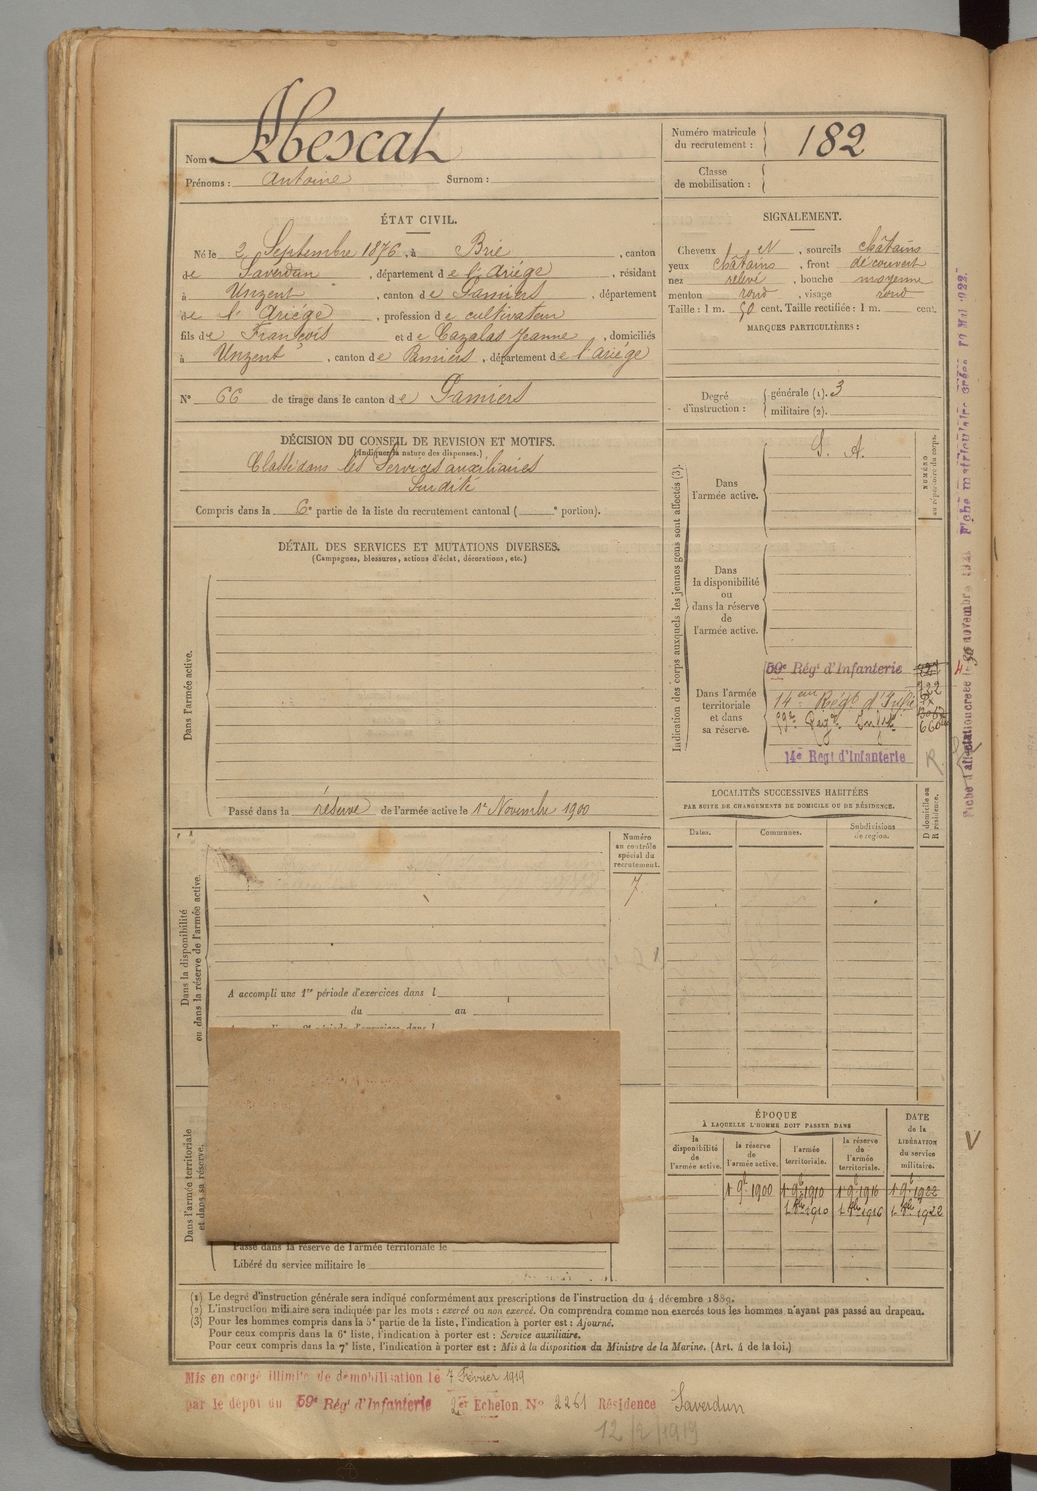 Nom Abescat
Prénoms : Antoine Surnom :
Numéro matricule du recrutement : 182
Classe de mobilisation :
ÉTAT CIVIL.
Né le 2 Septembre 1876, à Brie, canton
de Saverdun, département de l'Ariége, résidant
à Unzent, canton de Pamiers, département
de l'Ariége, profession de cultivateur
fils de François et de Cazalas Jeanne, domiciliés
à Unzent, canton de Pamiers, département de l'ariége
N° 66 de tirage dans le canton de Pamiers
SIGNALEMENT.
Cheveux N, sourcils châtains
yeux châtains, front découvert
nez relevé, bouche moyenne
menton rond, visage rond
Taille : 1 m. 50 cent. Taille rectifiée : 1 m. cent.
MARQUES PARTICULIÈRES :
Degré d'instruction : générale (1). 3
militaire (2).
DÉCISION DU CONSEIL DE REVISION ET MOTIFS.
(Indiquer la nature des dispenses.)
Classé dans les Services auxiliaires
Surdité
Compris dans la 6e partie de la liste du recrutement cantonal ( e portion).
DÉTAIL DES SERVICES ET MUTATIONS DIVERSES.
(Campagnes, blessures, actions d'éclat, décorations, etc.)
Dans l'armée active.
Passé dans la réserve de l'armée active le 1er Novembre 1900
Indication des corps auxquels les jeunes gens sont affectés (3).
NUMÉRO au répertoire du corps.
Dans l'armée active.
S. A.
Dans la disponibilité ou dans la réserve de l'armée active.
Dans l'armée territoriale et dans sa réserve.
59e Régt d'Infanterie
722
14e Régt d'Infie
59e Régt Infie
14e Regt d'Infanterie
R
LOCALITÉS SUCCESSIVES HABITÉES
PAR SUITE DE CHANGEMENTS DE DOMICILE OU DE RÉSIDENCE.
D domicile ou R résidence.
Dates. Communes. Subdivisions de région.
Dans la disponibilité ou dans la réserve de l'armée active.
Numéro au contrôle spécial du recrutement.
7
A accompli une 1re période d'exercices dans l
du au
Dans l'armée territoriale et dans sa réserve.
Passé dans la réserve de l'armée territoriale le
Libéré du service militaire le
ÉPOQUE
À LAQUELLE L'HOMME DOIT PASSER DANS
DATE de la LIBÉRATION du service militaire.
la disponibilité de l'armée active. la réserve de l'armée active. l'armée territoriale. la réserve de l'armée territoriale.
1 9bre 1900 1 9bre 1910 1 9bre 1916 1 9bre 1922
1 8bre 1910 1 8bre 1916 1 8bre 1922
(1) Le degré d'instruction générale sera indiqué conformément aux prescriptions de l'instruction du 4 décembre 1889.
(2) L'instruction militaire sera indiquée par les mots : exercé ou non exercé. On comprendra comme non exercés tous les hommes n'ayant pas passé au drapeau.
(3) Pour les hommes compris dans la 5e partie de la liste, l'indication à porter est : Ajourné.
Pour ceux compris dans la 6e liste, l'indication à porter est : Service auxiliaire.
Pour ceux compris dans la 7e liste, l'indication à porter est : Mis à la disposition du Ministre de la Marine. (Art. 4 de la loi.)
Mis en congé illimité de démobilisation le 7 Février 1919
par le dépôt du 59e Régt d'Infanterie 2er Echelon N° 2261 Résidence Saverdun
12/2/1919
Fiche d'affectation créée le 30 novembre 1921 Fiche matriculaire créée 10 Mai 1922.
V